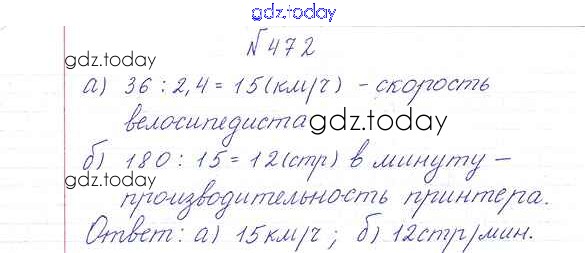 gdz.today
№472
gdz.today
а) 36 : 2,4 = 15(км/ч) - скорость
велосипедиста gdz.today
б) 180 : 15 = 12(стр) в минуту -
gdz.today
производительность принтера.
Ответ: а) 15км/ч ; б) 12стр/мин.